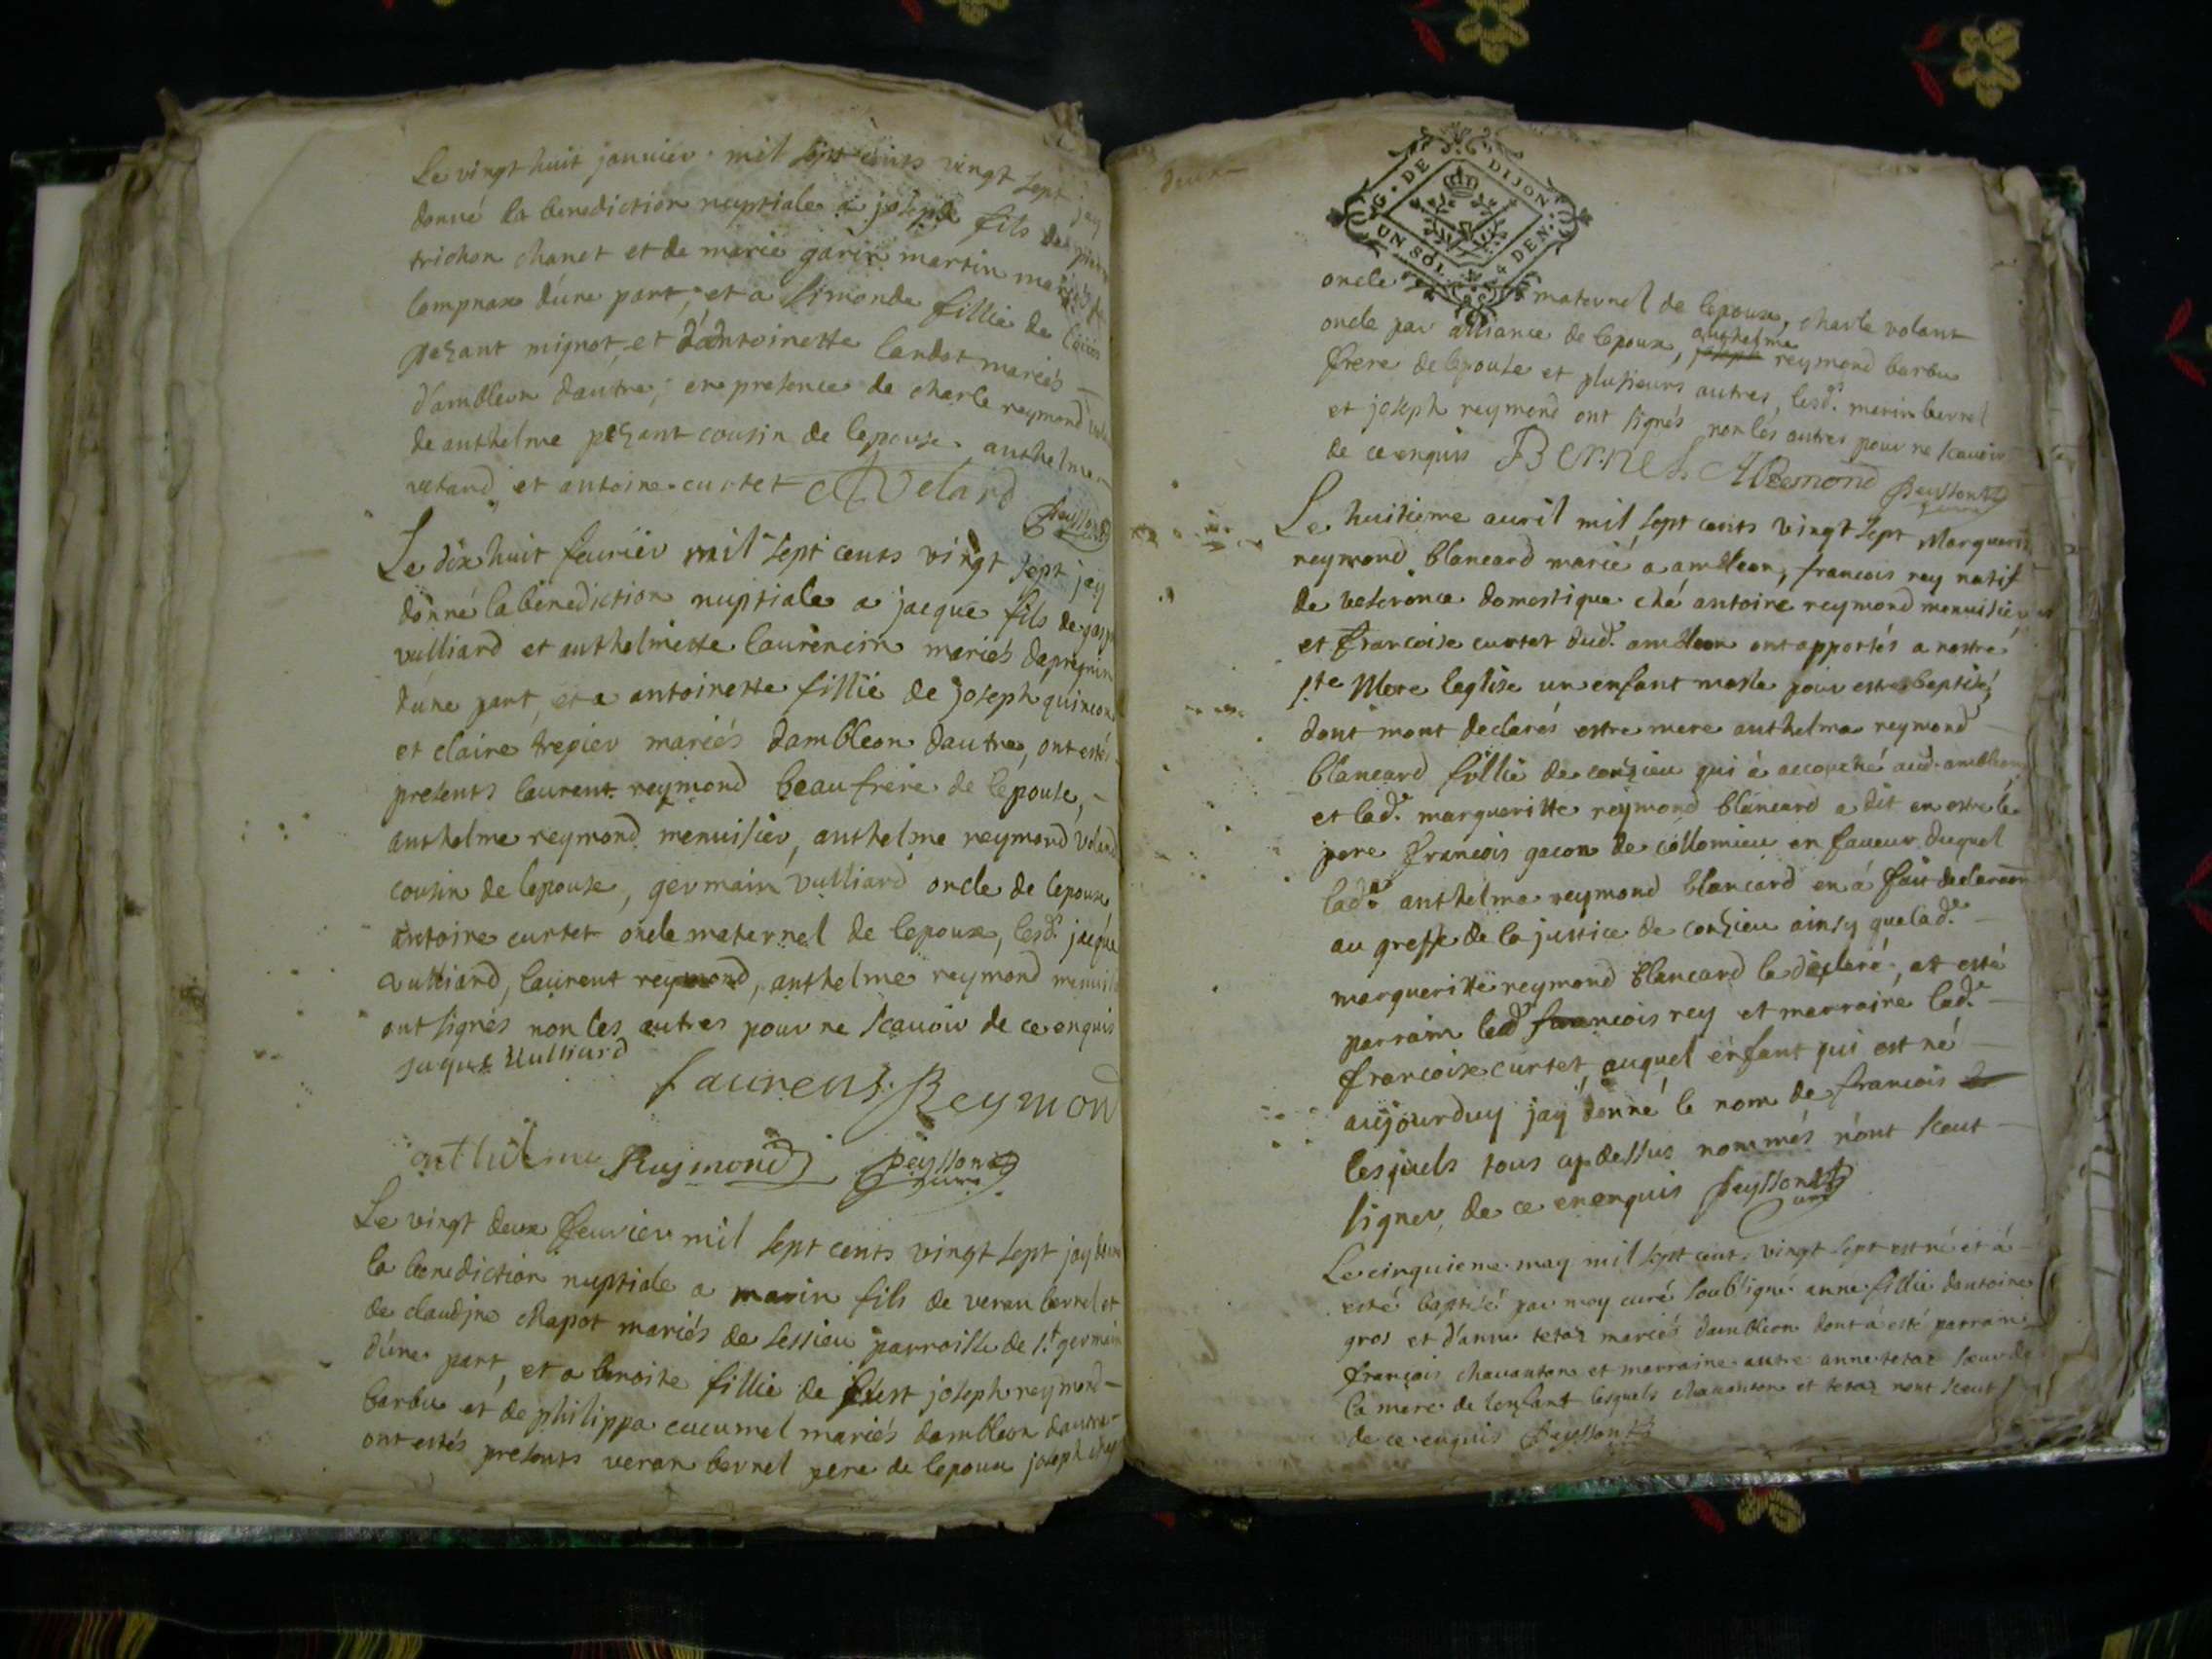 Le vingt huit januier mil sept cents vingt sept jay
donné la benediction nuptiale a joseph fils de pierre
trichon chanet et de marie garin martin mariés de
lompnax d'une part, et a simonde fillie de
pezant mignot, et d'antoinette landot mariés
d'ambleon d'autre, en presence de charle reymond
de anthelme pezant cousin de lepouse, anthelme
velard et antoine curtet AVelard
peysson curé
Le dix huit feurier mil sept cents vingt sept jay
donné la benediction nuptiale a jacque fils de
vulliard et anthelmette laurencin mariés
d'une part, et a antoinette fillie de joseph quincon
et claire tregier mariés dambleon dautre, ont estés
presents laurent reymond beaufrere de lepouse,
anthelme reymond menuisier, anthelme reymond Voland
cousin de lepouse, germain vulliard oncle de lepoux
antoine curtet oncle maternel de lepoux, lesd. jacque
vulliard, laurent reymond, anthelme reymond
ont signés non les autres pour ne scauoir de ce enquis
Jaque Uulliard
Laurens Reymond
anthelme Raymond peysson curé
Le vingt deux feurier mil sept cents vingt sept jay donné
la benediction nuptiale a marin fils de veran bernel et
de claudine chapot mariés de sessieu parroisse de st. germain
d'une part, et a benoite fillie de joseph reymond
barbu et de philippa cucumel mariés dambleon dautre
ont estés presents veran bernel pere de lepoux joseph
deux
G. DE DIJON
UN SOL 4 DEN.
oncle maternel de lepoux, charle volant
oncle par alliance de lepoux, anthelme reymond barbu
frere de lepouse et plusieurs autres, lesd. marin bernel
et joseph reymond ont signés non les autres pour ne scauoir
de ce enquis Bernel A Remond peysson curé
Le huitieme auril mil sept cents vingt sept Margueritte
reymond blancard marié a ambleon, francois rey natif
de veseronce domestique ché antoine reymond menuisier
et francoise curtet dud. ambleon ont apportés a nostre
ste Mere leglise un enfant masle pour estre baptisé,
dont mont declarés estre mere anthelma reymond
blancard fillie de conzieu qui à accouché aud. ambleon
et lad. margueritte reymond blancard a dit en estre le
pere francois gacon de collomieu en faueur duquel
lad. anthelma reymond blancard en á fait declaraon
au greffe de la justice de conzieu ainsy que lad.
margueritte reymond blancard la declaré, at esté
parrain led francois rey et marraine lad.
francoise curtet, auquel enfant qui est né
aujourduy jay donné le nom de francois
lesquels tous cydessus nommés n'ont sceut
signer, de ce enenquis peysson curé
Le cinquieme may mil sept cent vingt sept est né et á
esté baptisé par moy curé soubsigné anne fillie dantoine
gros et d'anne tetaz mariés dambleon dont á esté parrain
françois chauanton et marraine autre anne tetaz soeur de
la mere de lenfant lesquels chauanton et tetaz nont sceut
de ce enquis peysson curé